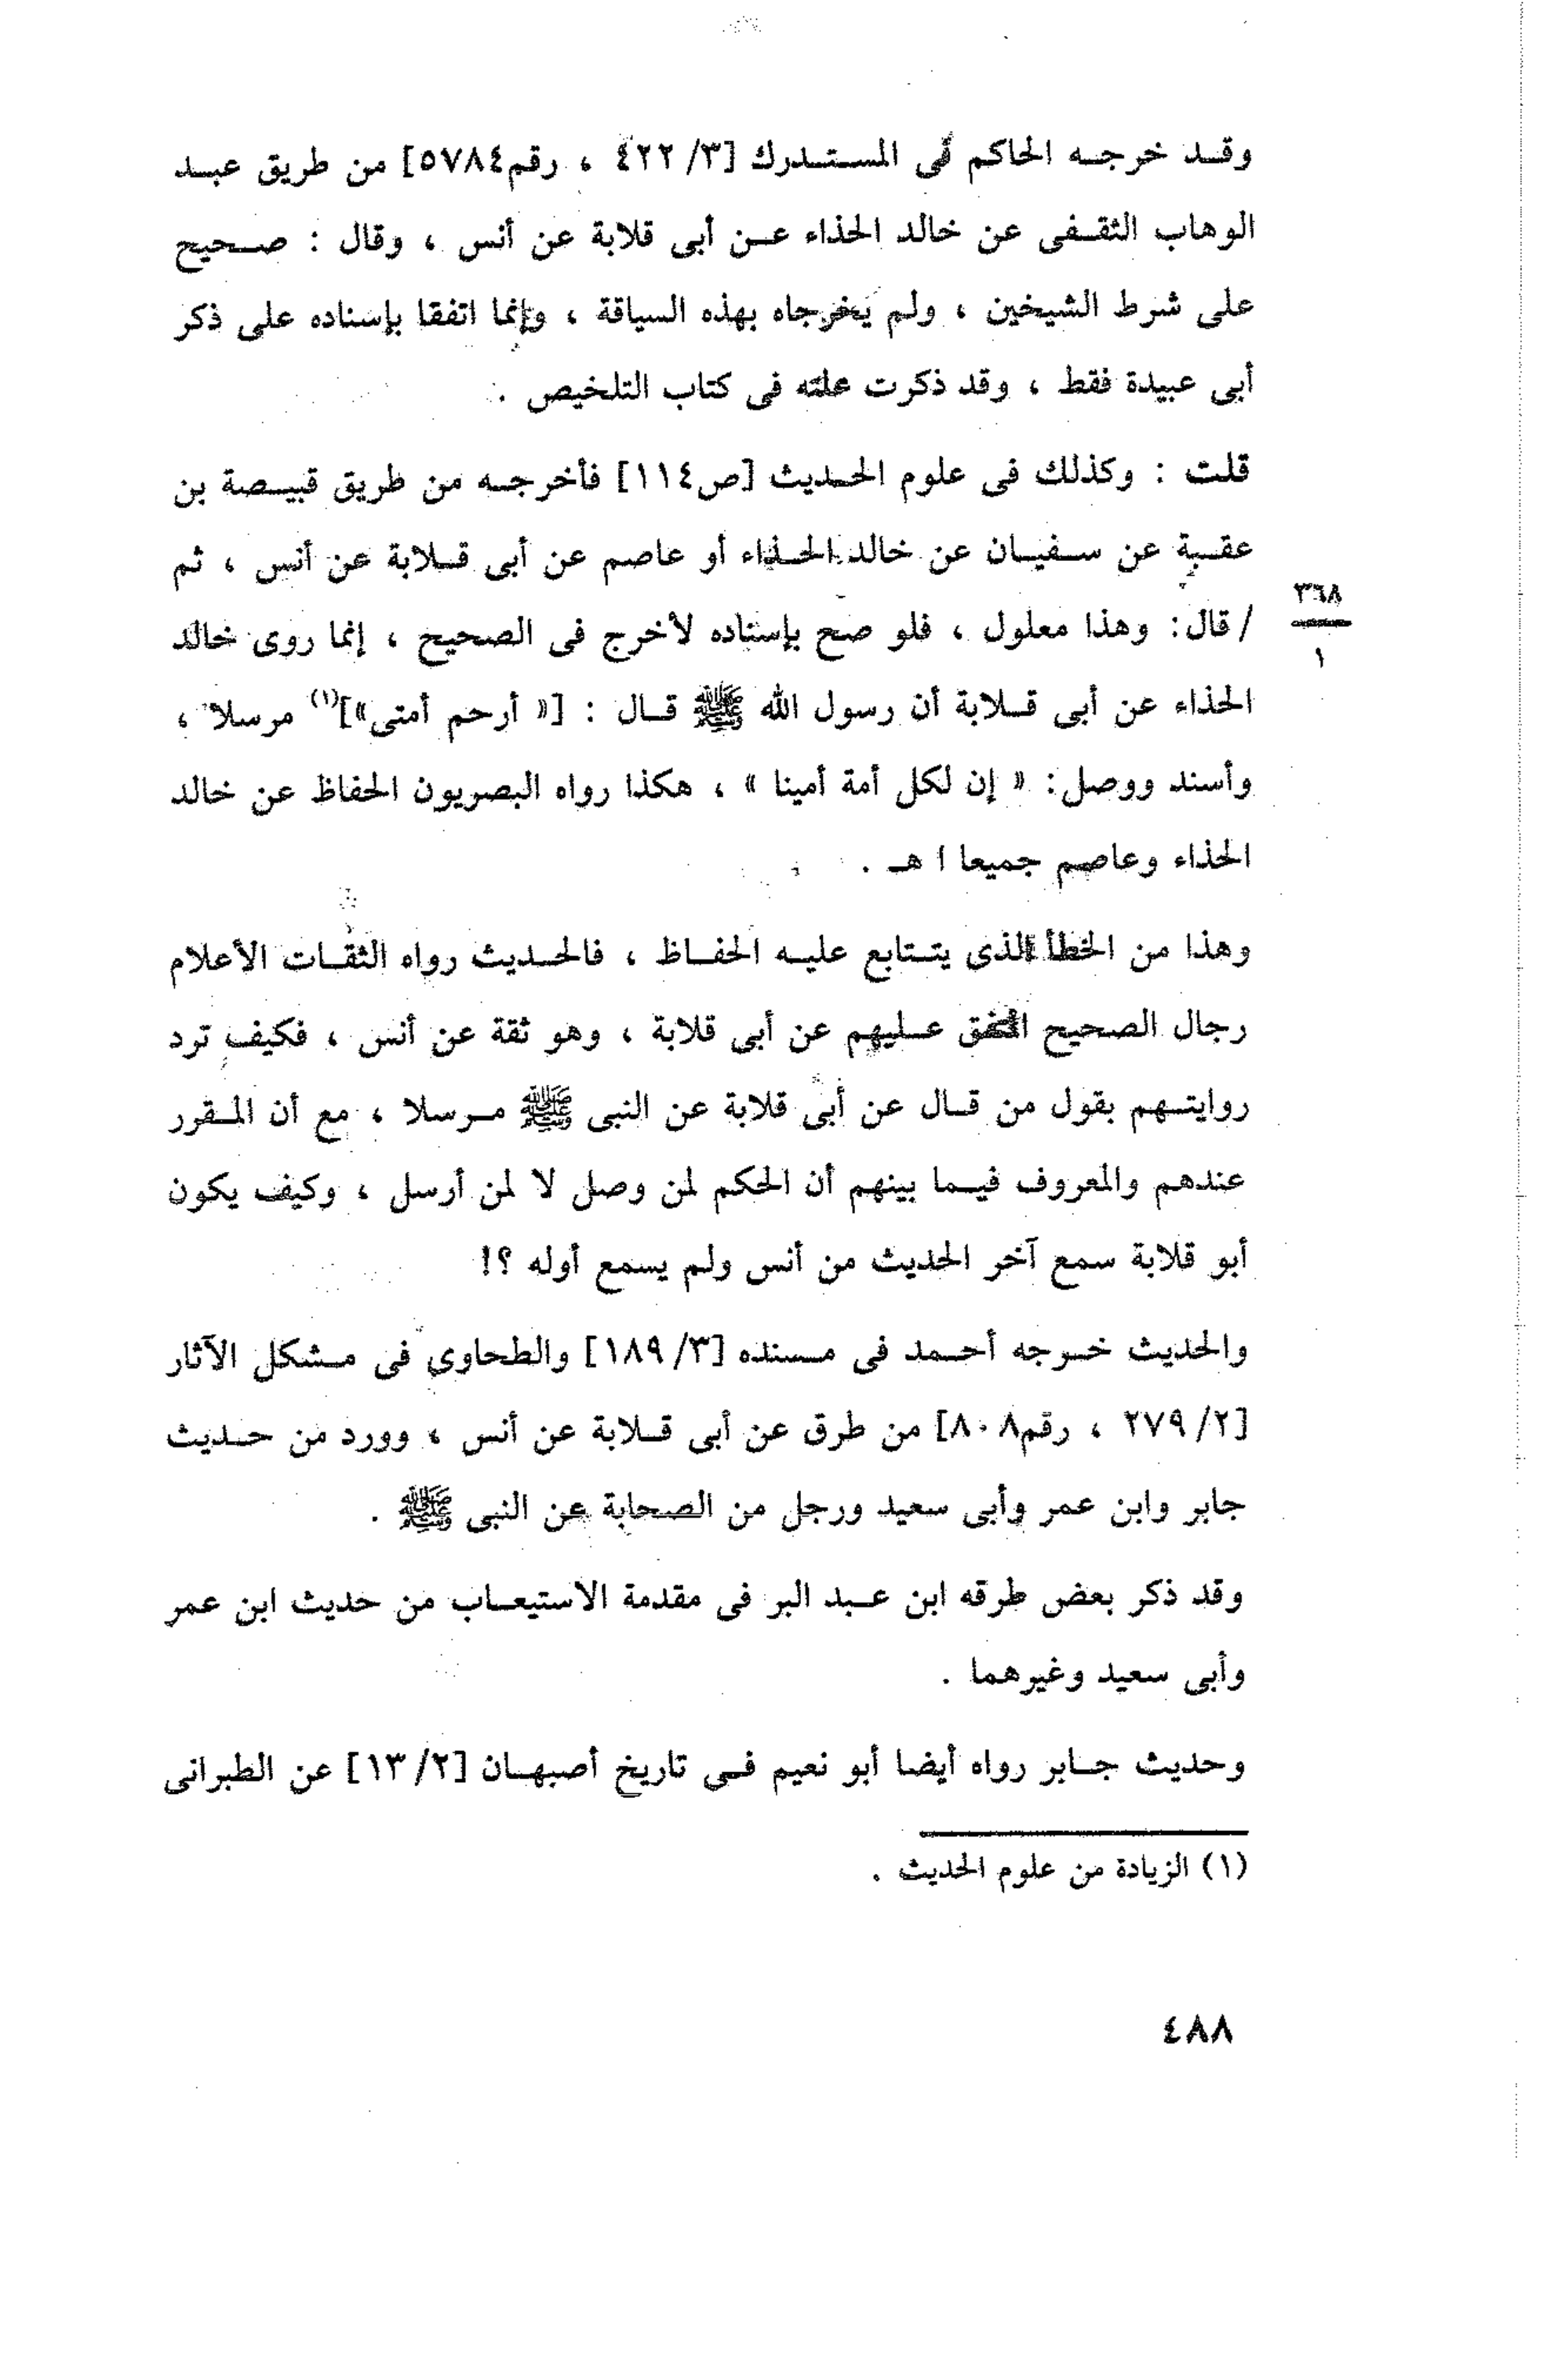 وقد خرجه الحاكم فى المستدرك [٣/ ٤٢٢ ، رقم٥٧٨٤] من طريق عبد
الوهاب الثقفى عن خالد الحذاء عن أبى قلابة عن أنس ، وقال : صحيح
على شرط الشيخين ، ولم يخرجاه بهذه السياقة ، وإنما اتفقا بإسناده على ذكر
أبى عبيدة فقط ، وقد ذكرت علته فى كتاب التلخيص .
قلت : وكذلك فى علوم الحديث [ص١١٤] فأخرجه من طريق قبيصة بن
عقبة عن سفيان عن خالد الحذاء أو عاصم عن أبى قلابة عن أنس ، ثم
٣٦٨
١
/ قال: وهذا معلول ، فلو صح بإسناده لأخرج فى الصحيح ، إنما روى خالد
الحذاء عن أبى قلابة أن رسول الله ﷺ قال : [« أرحم أمتى»](١) مرسلا ،
وأسند ووصل: « إن لكل أمة أمينا » ، هكذا رواه البصريون الحفاظ عن خالد
الحذاء وعاصم جميعا ا هـ .
وهذا من الخطأ الذى يتتابع عليه الحفاظ ، فالحديث رواه الثقات الأعلام
رجال الصحيح المتفق عليهم عن أبى قلابة ، وهو ثقة عن أنس ، فكيف ترد
روايتهم بقول من قال عن أبى قلابة عن النبى ﷺ مرسلا ، مع أن المقرر
عندهم والمعروف فيما بينهم أن الحكم لمن وصل لا لمن أرسل ، وكيف يكون
أبو قلابة سمع آخر الحديث من أنس ولم يسمع أوله ؟!
والحديث خرجه أحمد فى مسنده [٣/ ١٨٩] والطحاوى فى مشكل الآثار
[٢/ ٢٧٩ ، رقم٨٠٨] من طرق عن أبى قلابة عن أنس ، وورد من حديث
جابر وابن عمر وأبى سعيد ورجل من الصحابة عن النبى ﷺ .
وقد ذكر بعض طرقه ابن عبد البر فى مقدمة الاستيعاب من حديث ابن عمر
وأبى سعيد وغيرهما .
وحديث جابر رواه أيضا أبو نعيم فى تاريخ أصبهان [٢/ ١٣] عن الطبرانى
(١) الزيادة من علوم الحديث .
٤٨٨